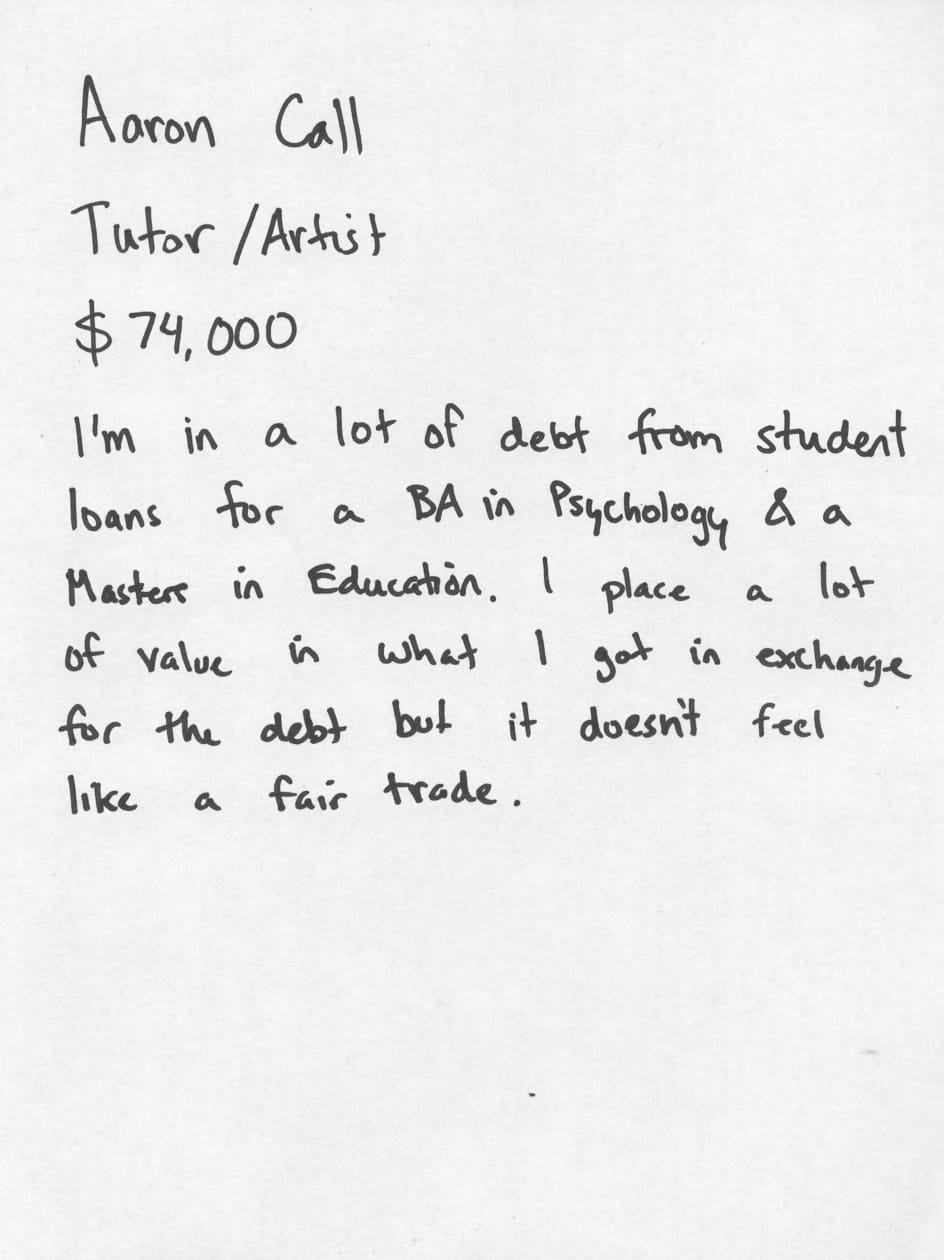 Aaron Call
Tutor/Artist
$74,000
I'm in a lot of debt from student
loans for a BA in Psychology & a
Masters in Education. I place a lot
of value in what I got in exchange
for the debt but it doesn't feel
like a fair trade.